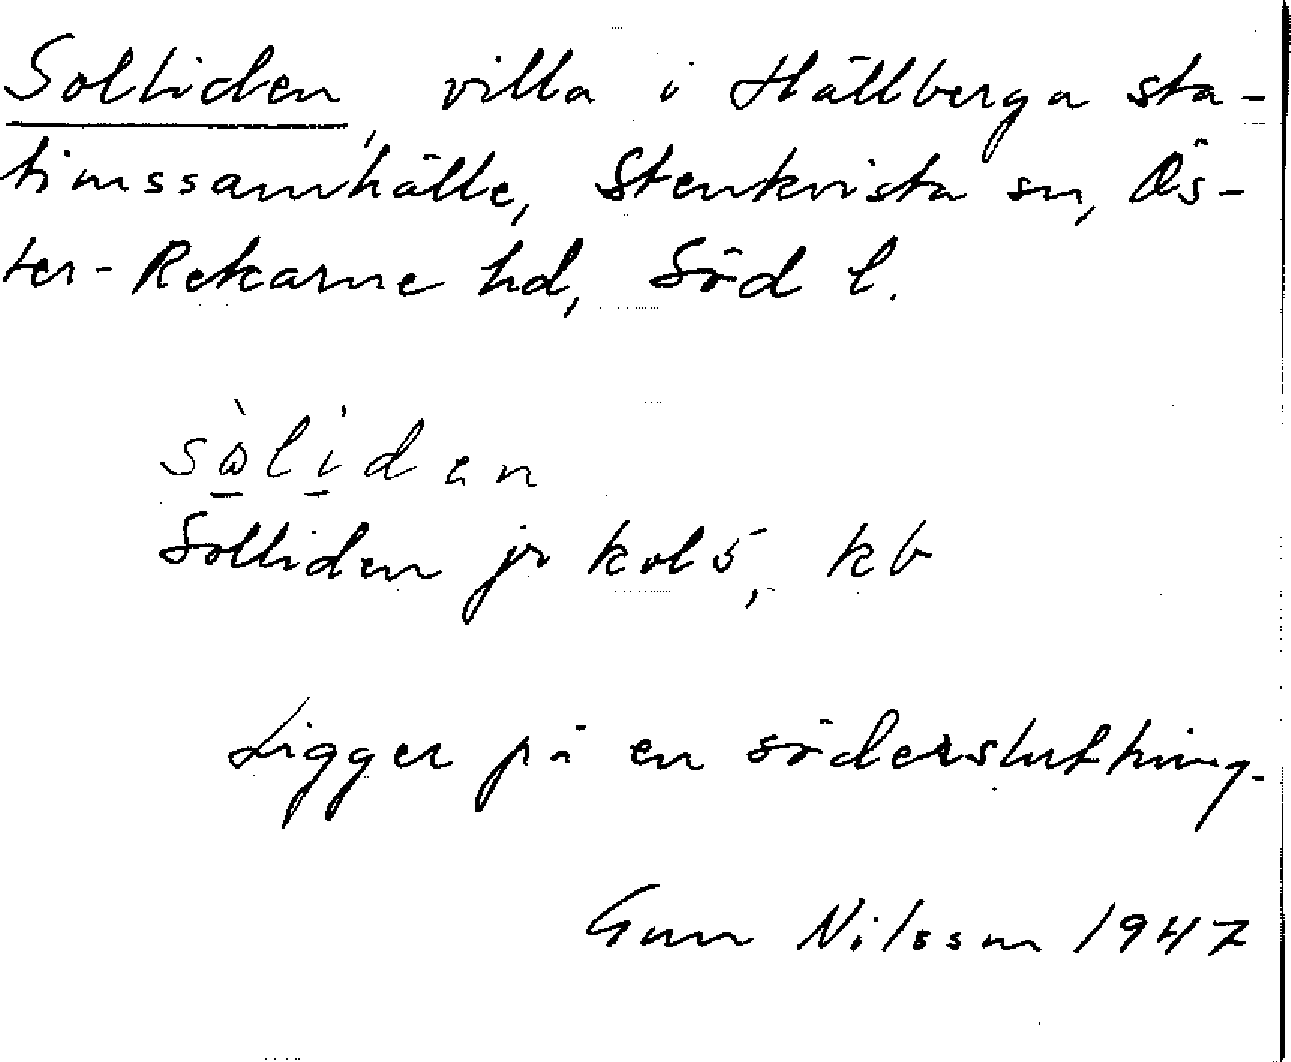 Solliden, villa i Hällberga sta-
tionssamhälle, Stenkvista sn, Ös-
ter-Rekarne hd, Söd l.
sòlíden
Solliden jr kol 5, kb
Ligger på en södersluttning.
Gun Nilsson 1947